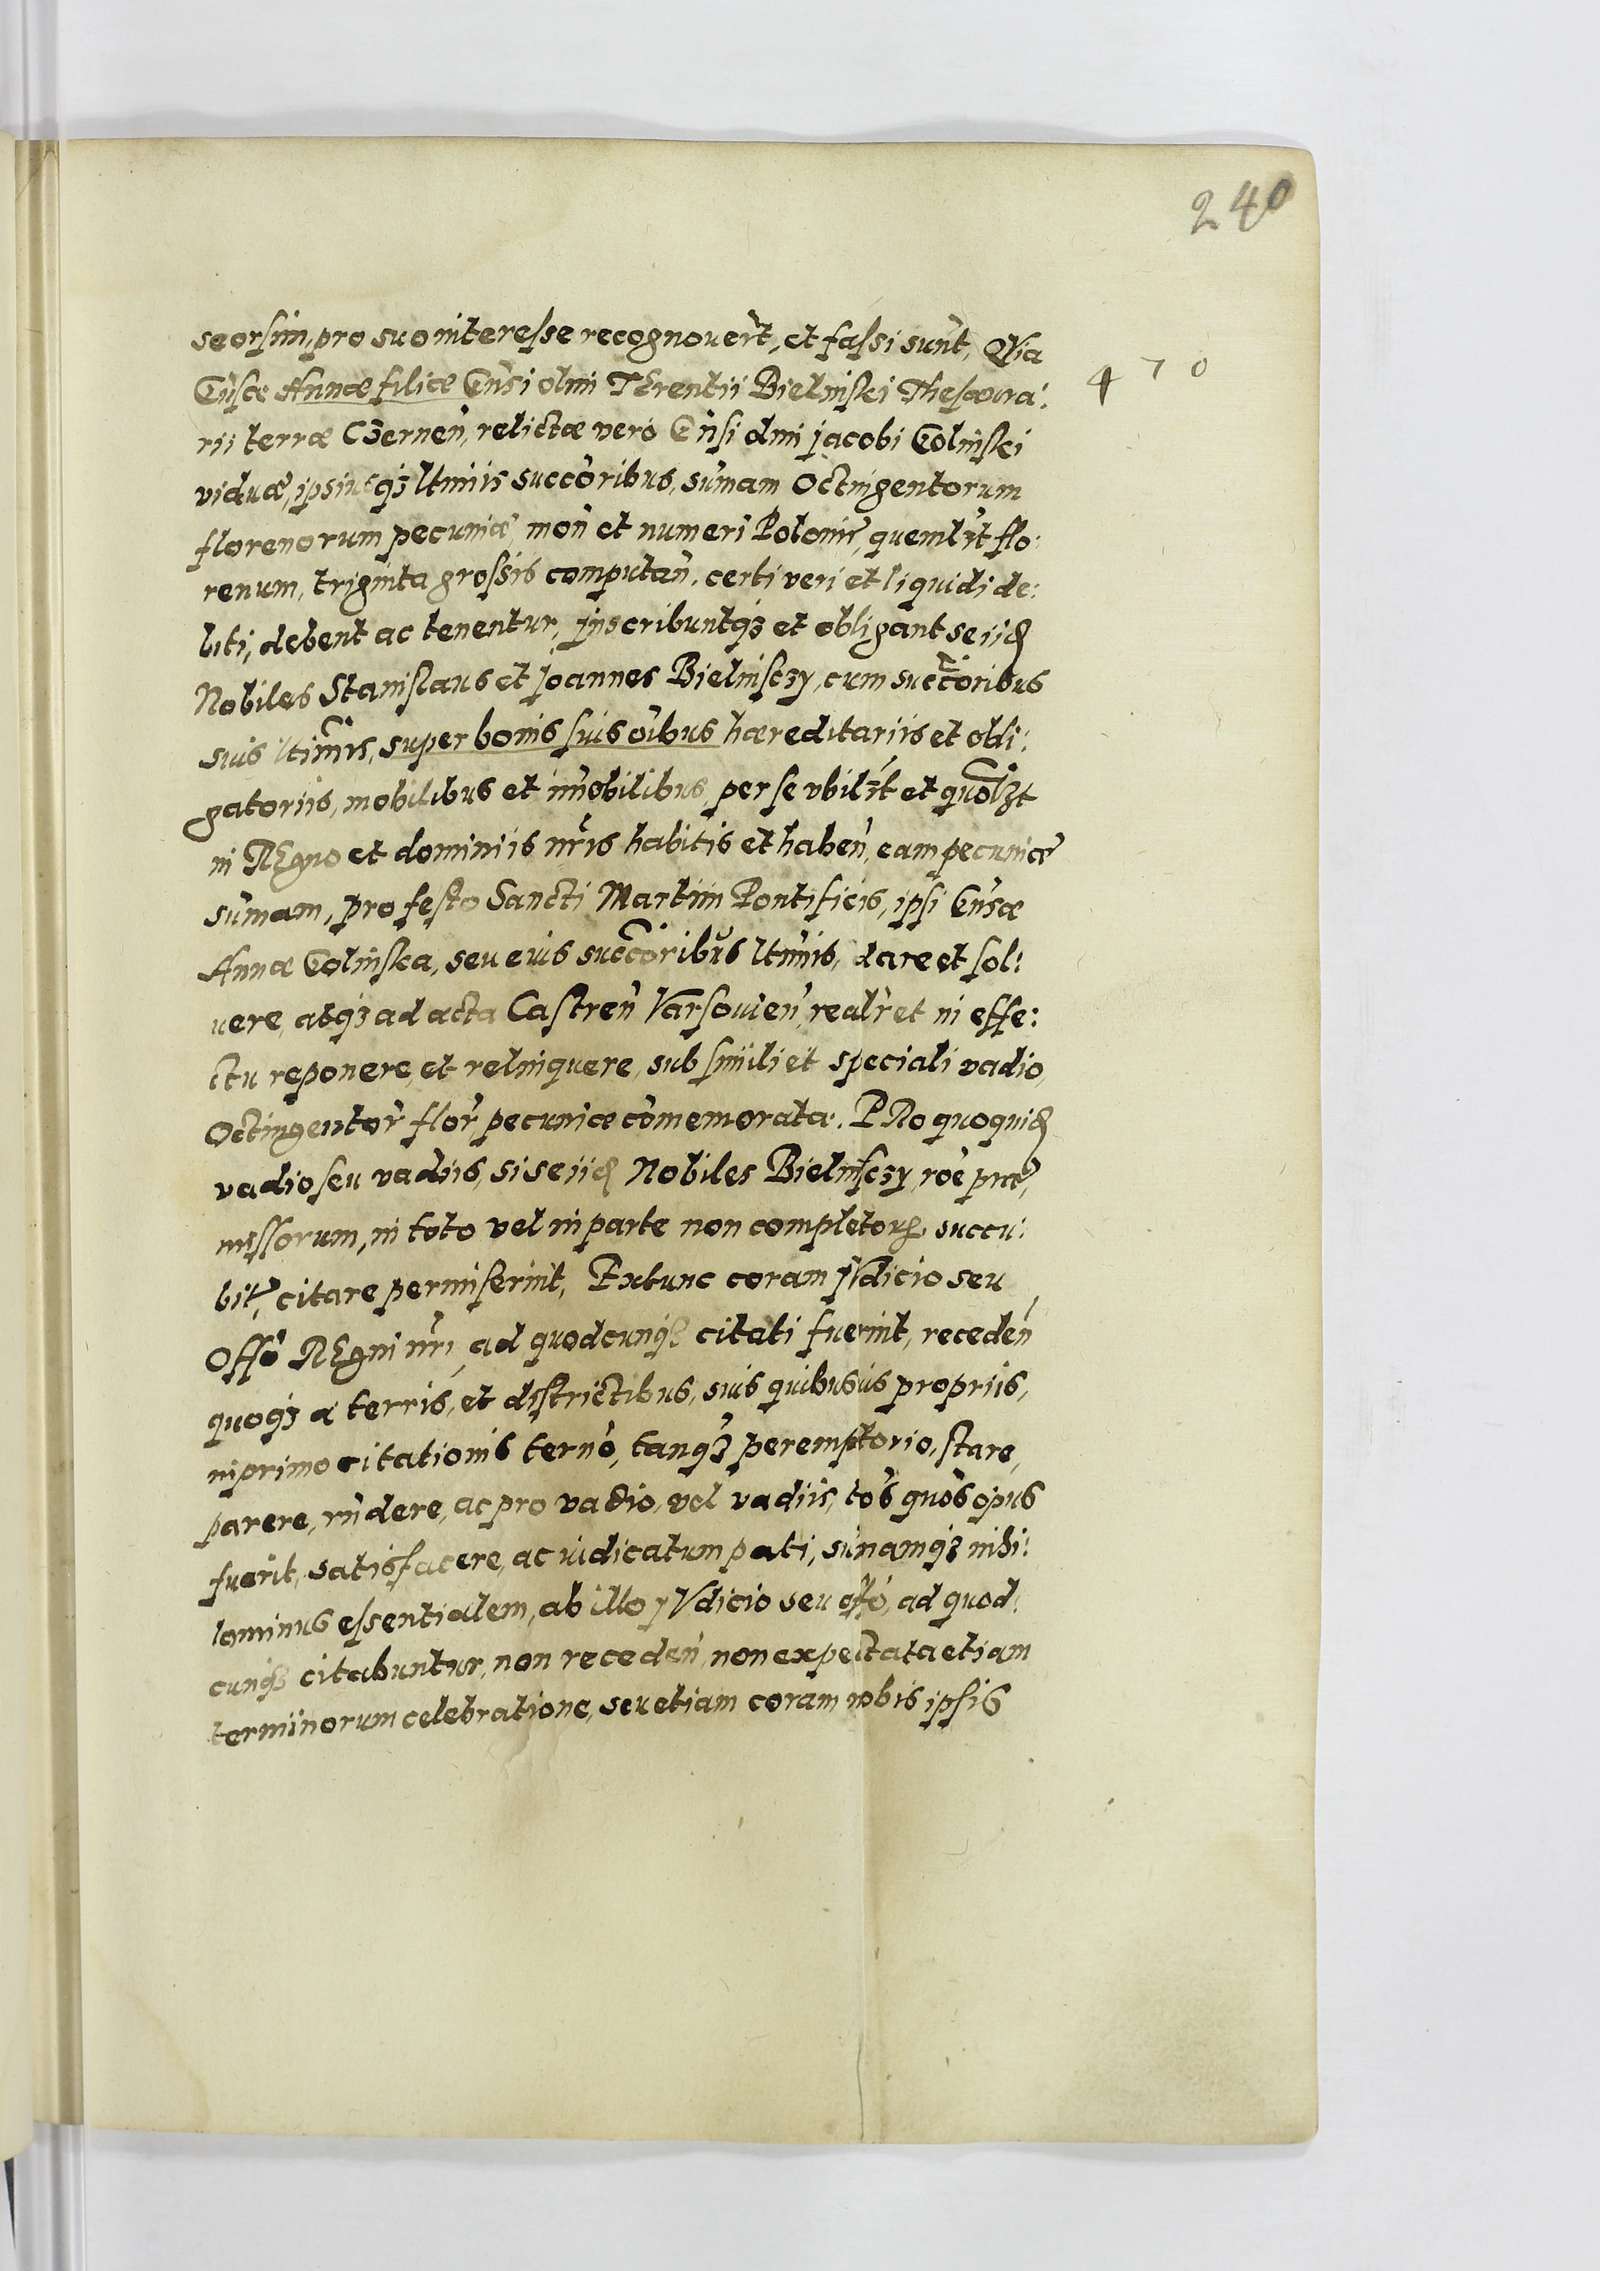 240
seorsim, pro suo interesse recognoverũt, et fassi sunt, Quia
Gñsæ Annæ filiæ Gñsi olim Terentii Bielinski Thesaura:
470
rii terræ Czerneñ, relictæ vero Gñsi dni Jacobi Golinski
viduæ, ipsiusqz ltimis succoribus, sũmam Octingentorum
florenorum pecuniæ moñ et numeri Poloniẽ, quemlzt flo:
renum, triginta grossis computañ, certi veri et liquidi de:
biti, debent ac tenentur, Inscribuntqz et obligant se iid
Nobiles Stanislaus et Joannes Bielinsczy, cum succoribus
suis ltimis, super bonis suis oibus hæreditariis et obli:
gatoriis, mobilibus et imobilibus, per se ubilzt et quomolzt
in Regno et dominiis nris habitis et habeñ, eam pecuniæ
sũmam, pro festo Sancti Martini Pontificis, ipsi Gñsæ
Annæ Golinska, seu eius succoribus ltimis, dare et sol:
vere, atqz ad acta Castreñ Varsovieñ, realr et in effe:
ctu reponere, et relinquere, sub simili et speciali vadio,
Octingentor flor pecuniæ comemorata. PRo quoquid
vadio seu vadiis, si se iid Nobiles Bielinsczy, roe præ,
missorum, in toto vel in parte non completor, succu:
bitẽ, citare permiserint, Extunc coram Judicio seu
Offõ Regni nri, ad quodcunqz citati fuerint, recedeñ
quoqz a terris, et districtibus, suis quibusvis propriis,
in primo citationis termo, tanqz peremptorio, stare,
parere, rñdere, ac pro vadio, vel vadiis, tõs quõs opus
fuerit, satisfacere, ac iudicatum pati, sũmamqz nihi:
lominus essentialem, ab illo Judicio seu offõ, ad quod:
cunqz citabuntur, non recedeñ, non expectata etiam
terminorum celebratione, seu etiam coram nobis ipsis